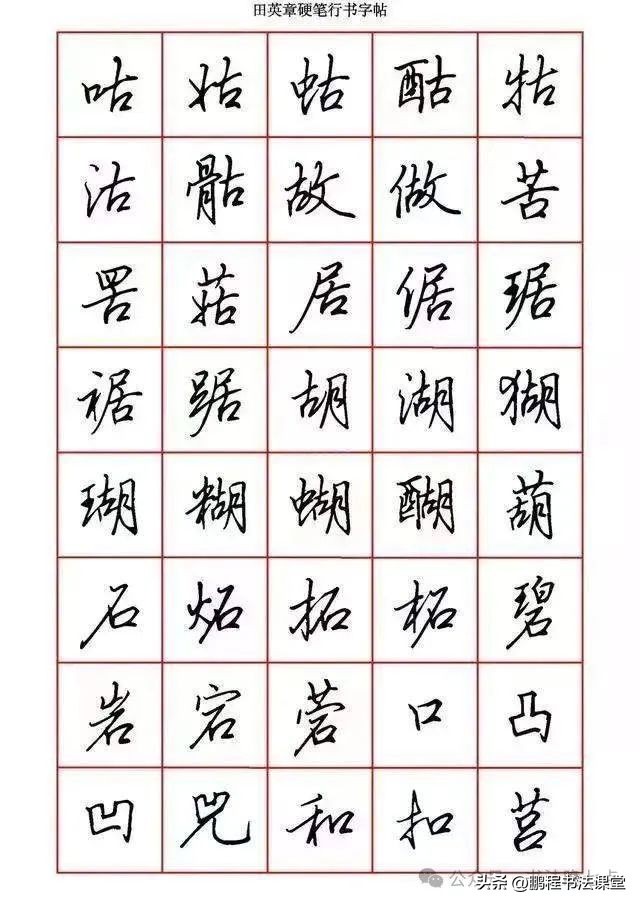 田英章硬笔行书字帖
咕 姑 蛄 酤 牯
沽 骷 故 做 苦
罟 菇 居 倨 琚
裾 踞 胡 湖 猢
瑚 糊 蝴 醐 葫
石 炻 拓 柘 碧
岩 宕 菪 口 凸
凹 兕 和 扣 莒
头条 @鹏程书法课堂